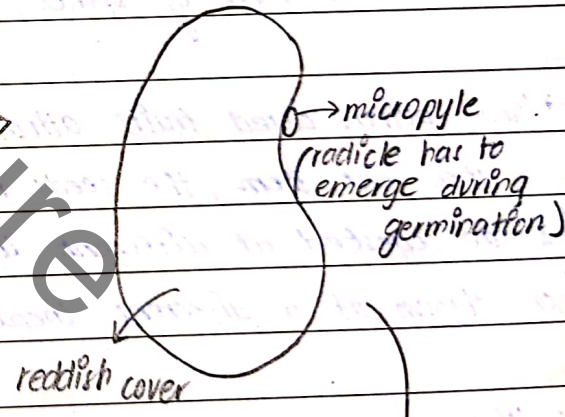 →micropyle
(radicle has to
emerge during
germination)
reddish cover
ure